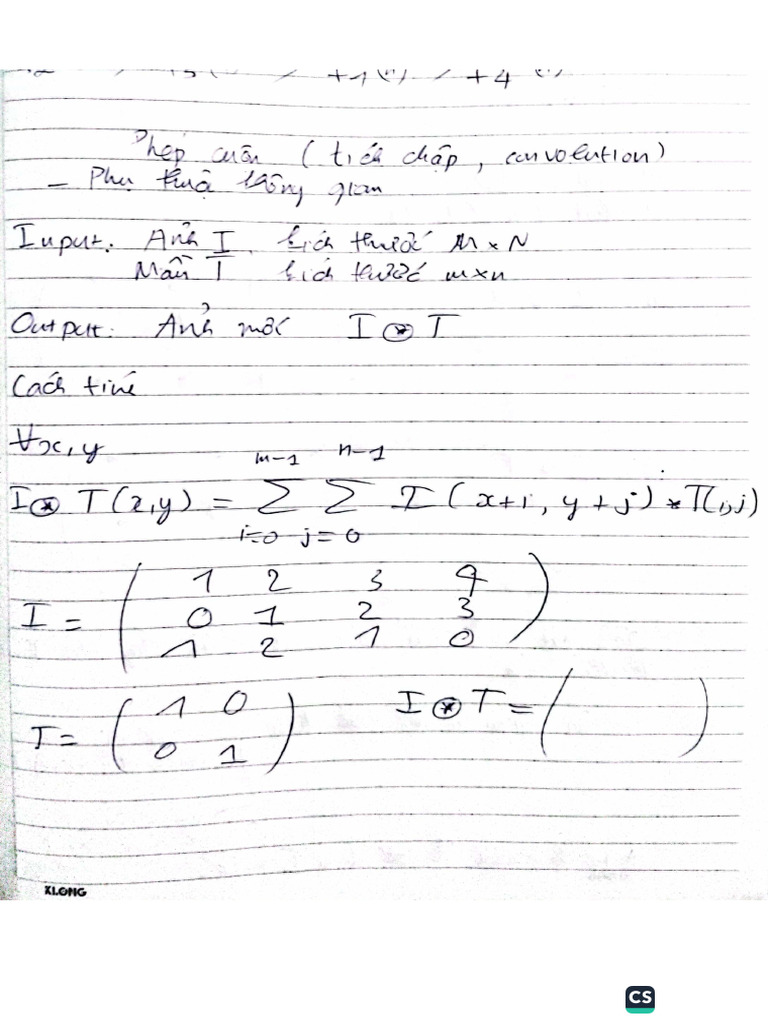 +1 +4
Phép cuốn (tích chập, convolution)
- Phụ thuộc không gian
Input: Ảnh I kích thước M×N
Mẫu T kích thước m×n
Output: Ảnh mới I ⊛ T
Cách tính
∀x,y
m-1 n-1
I ⊛ T(x,y) = Σ Σ I(x+i, y+j) * T(i,j)
i=0 j=0
1 2 3 4
I = ( 0 1 2 3 )
1 2 1 0
1 0 I ⊛ T = ( )
T = ( )
0 1
KLONG
CS